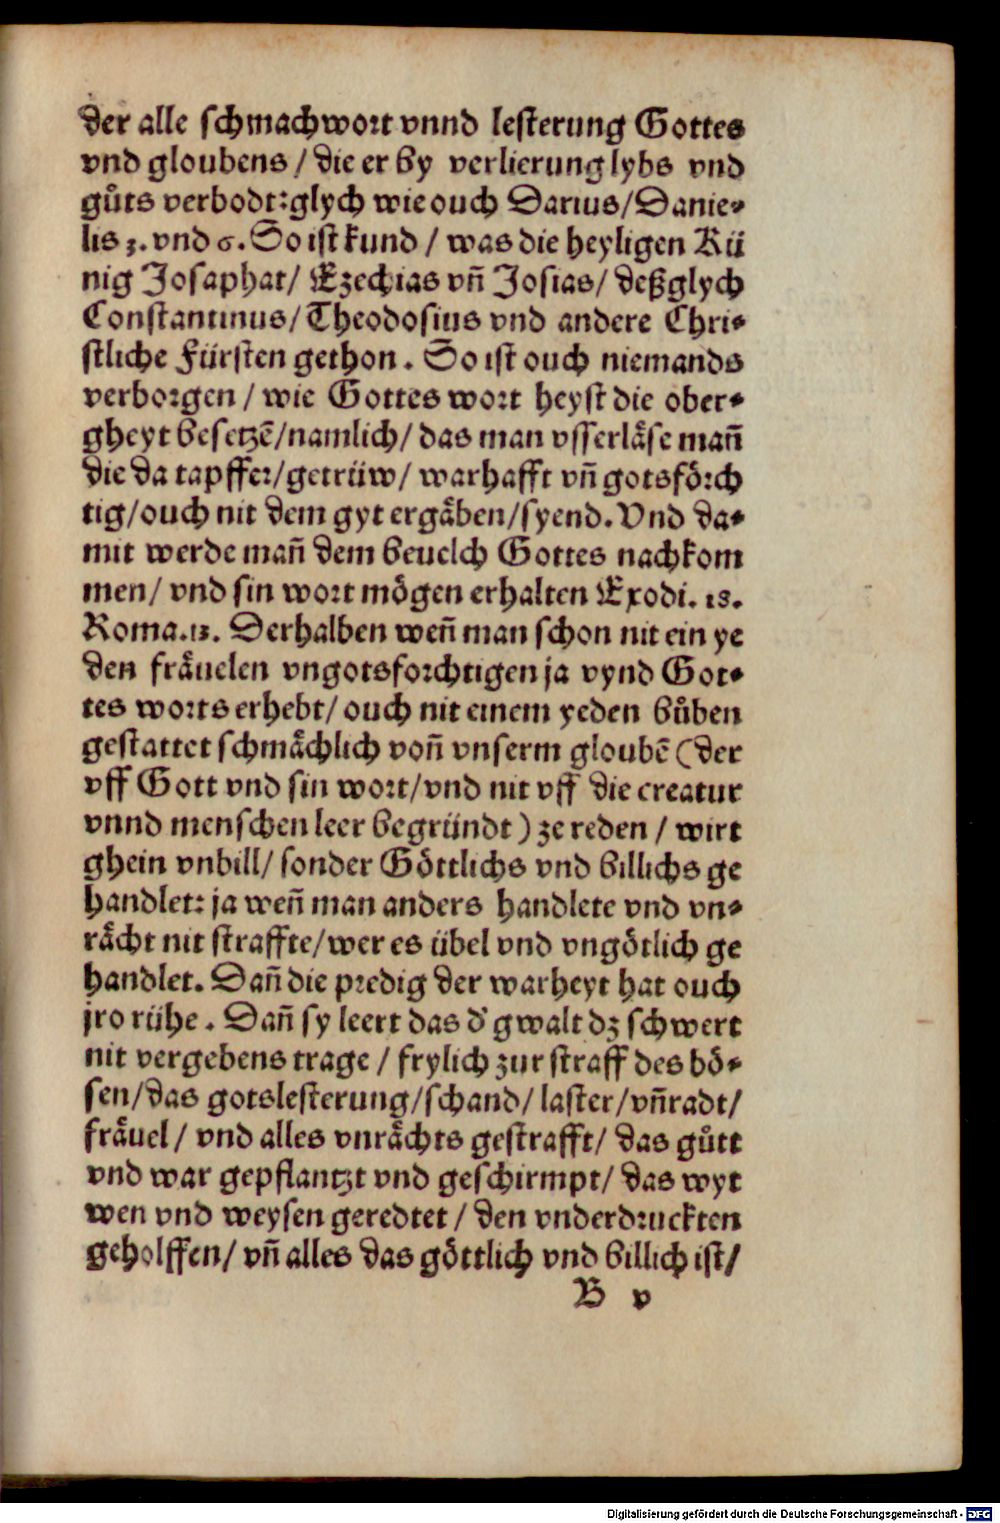 der alle schmachwort vnnd lesterung Gottes
vnd gloubens / die er by verlierung lybs vnd
gůts verbodt: glych wie ouch Darius/Danie-
lis 3. vnd 6. So ist kund / was die heyligen Kü
nig Josaphat/ Ezechias vñ Josias/ deßglych
Constantinus/ Theodosius vnd andere Chri-
stliche Fürsten gethon. So ist ouch niemands
verborgen / wie Gottes wort heyst die ober-
gheyt besetzē/namlich/ das man vsserläse mañ
die da tapffer/getrüw/ warhafft vñ gotsförch
tig/ouch nit dem gyt ergäben/syend. Vnd da-
mit werde mañ dem beuelch Gottes nachkom
men/ vnd sin wort mögen erhalten Exodi. 18.
Roma.13. Derhalben weñ man schon nit ein ye
den fräuelen vngotsforchtigen ja vynd Got-
tes worts erhebt/ ouch nit einem yeden bůben
gestattet schmächlich voñ vnserm gloubē (der
vff Gott vnd sin wort/vnd nit vff die creatur
vnnd menschen leer begründt) ze reden / wirt
ghein vnbill/ sonder Göttlichs vnd billichs ge
handlet: ja weñ man anders handlete vnd vn-
rächt nit straffte/wer es übel vnd vngötlich ge
handlet. Dañ die predig der warheyt hat ouch
jro rühe. Dañ sy leert das d' gwalt dz schwert
nit vergebens trage / frylich zur straff des bö-
sen/das gotslesterung/schand/ laster/vñradt/
fräuel/ vnd alles vnrächts gestrafft/ das gůtt
vnd war gepflantzt vnd geschirmpt/ das wyt
wen vnd weysen geredtet / den vnderdruckten
geholffen/ vñ alles das göttlich vnd billich ist/
B v
Digitalisierung gefördert durch die Deutsche Forschungsgemeinschaft - DFG